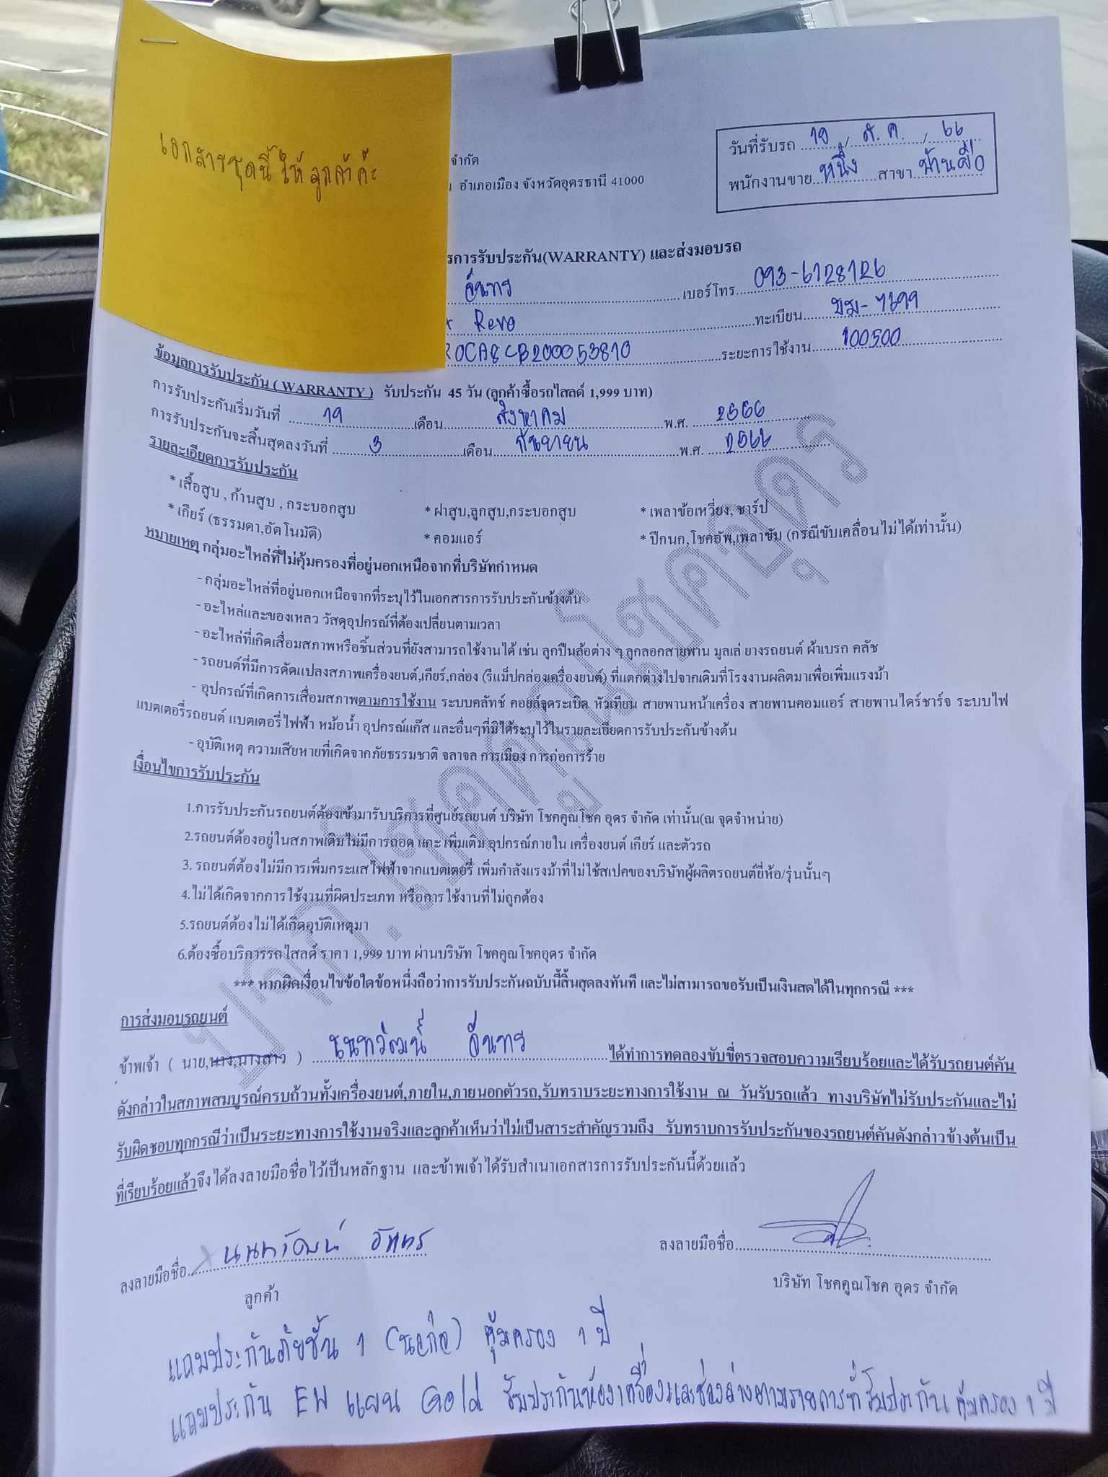 เอกสารชุดนี้ ให้ ลูกค้า ค่ะ
จำกัด
อำเภอเมือง จังหวัดอุดรธานี 41000
วันที่รับรถ 19 / ส.ค. / 66
พนักงานขาย หนึ่ง สาขา บ้านผือ
รการรับประกัน(WARRANTY) และส่งมอบรถ
อันทร เบอร์โทร 093-6128126
Revo ทะเบียน
0CA8CB200053810 ระยะการใช้งาน 100500
ข้อมูลการรับประกัน ( WARRANTY ) รับประกัน 45 วัน (ลูกค้าซื้อรถไสลด์ 1,999 บาท)
การรับประกันเริ่มวันที่ 19 เดือน สิงหาคม พ.ศ. 2566
การรับประกันจะสิ้นสุดลงวันที่ 3 เดือน กันยายน พ.ศ. 2566
รายละเอียดการรับประกัน
* เสื้อสูบ , ก้านสูบ , กระบอกสูบ * ฝาสูบ,ลูกสูบ,กระบอกสูบ * เพลาข้อเหวี่ยง, ชาร์ป
* เกียร์ (ธรรมดา,อัตโนมัติ) * คอมแอร์ * ปีกนก,โชคอัพ,เพลาขับ (กรณีขับเคลื่อนไม่ได้เท่านั้น)
หมายเหตุ กลุ่มอะไหล่ที่ไม่คุ้มครองที่อยู่นอกเหนือจากที่บริษัทกำหนด
- กลุ่มอะไหล่ที่อยู่นอกเหนือจากที่ระบุไว้ในเอกสารการรับประกันข้างต้น
- อะไหล่และของเหลว วัสดุอุปกรณ์ที่ต้องเปลี่ยนตามเวลา
- อะไหล่ที่เกิดเสื่อมสภาพหรือชิ้นส่วนที่ยังสามารถใช้งานได้ เช่น ลูกปืนล้อต่าง ๆ ลูกลอกสายพาน มูลเล่ ยางรถยนต์ ผ้าเบรก คลัช
- รถยนต์ที่มีการดัดแปลงสภาพเครื่องยนต์,เกียร์,กล่อง (รีแม็ปกล่องเครื่องยนต์) ที่แตกต่างไปจากเดิมที่โรงงานผลิตมาเพื่อเพิ่มแรงม้า
- อุปกรณ์ที่เกิดการเสื่อมสภาพตามการใช้งาน ระบบคลัทช์ คอยล์จุดระเบิด หัวเทียน สายพานหน้าเครื่อง สายพานคอมแอร์ สายพานไดร์ชาร์จ ระบบไฟ
แบตเตอรี่รถยนต์ แบตเตอรี่ไฟฟ้า หม้อน้ำ อุปกรณ์แก๊ส และอื่นๆที่มิได้ระบุไว้ในรายละเอียดการรับประกันข้างต้น
- อุบัติเหตุ ความเสียหายที่เกิดจากภัยธรรมชาติ จลาจล การเมือง การก่อการร้าย
เงื่อนไขการรับประกัน
1.การรับประกันรถยนต์ต้องเข้ามารับบริการที่ศูนย์รถยนต์ บริษัท โชคคูณโชค อุดร จำกัด เท่านั้น(ณ จุดจำหน่าย)
2.รถยนต์ต้องอยู่ในสภาพเดิมไม่มีการถอด แกะ เพิ่มเติม อุปกรณ์ภายใน เครื่องยนต์ เกียร์ และตัวรถ
3. รถยนต์ต้องไม่มีการเพิ่มกระแสไฟฟ้าจากแบตเตอรี่ เพิ่มกำลังแรงม้าที่ไม่ใช้สเปคของบริษัทผู้ผลิตรถยนต์ยี่ห้อ/รุ่นนั้นๆ
4.ไม่ได้เกิดจากการใช้งานที่ผิดประเภท หรือการใช้งานที่ไม่ถูกต้อง
5.รถยนต์ต้องไม่ได้เกิดอุบัติเหตุมา
6.ต้องซื้อบริการรถไสลด์ ราคา 1,999 บาท ผ่านบริษัท โชคคูณโชคอุดร จำกัด
*** หากผิดเงื่อนไขข้อใดข้อหนึ่งถือว่าการรับประกันฉบับนี้สิ้นสุดลงทันที และไม่สามารถขอรับเป็นเงินสดได้ในทุกกรณี ***
การส่งมอบรถยนต์
ข้าพเจ้า ( นาย,นาง,นางสาว ) นนทวัฒน์ อันทร ได้ทำการทดลองขับขี่ตรวจสอบความเรียบร้อยและได้รับรถยนต์คัน
ดังกล่าวในสภาพสมบูรณ์ครบถ้วนทั้งเครื่องยนต์,ภายใน,ภายนอกตัวรถ,รับทราบระยะทางการใช้งาน ณ วันรับรถแล้ว ทางบริษัทไม่รับประกันและไม่
รับผิดชอบทุกกรณีว่าเป็นระยะทางการใช้งานจริงและลูกค้าเห็นว่าไม่เป็นสาระสำคัญรวมถึง รับทราบการรับประกันของรถยนต์คันดังกล่าวข้างต้นเป็น
ที่เรียบร้อยแล้วจึงได้ลงลายมือชื่อไว้เป็นหลักฐาน และข้าพเจ้าได้รับสำเนาเอกสารการรับประกันนี้ด้วยแล้ว
ลงลายมือชื่อ นนทวัฒน์ อันทร ลงลายมือชื่อ
ลูกค้า บริษัท โชคคูณโชค อุดร จำกัด
แถมประกันภัยชั้น 1 คุ้มครอง 1 ปี
แถมประกัน EW แผน Gold รับประกันห้องเครื่องและช่วงล่างตามรายการที่รับประกัน คุ้มครอง 1 ปี
บจก.โชคคูณโชคอุดร